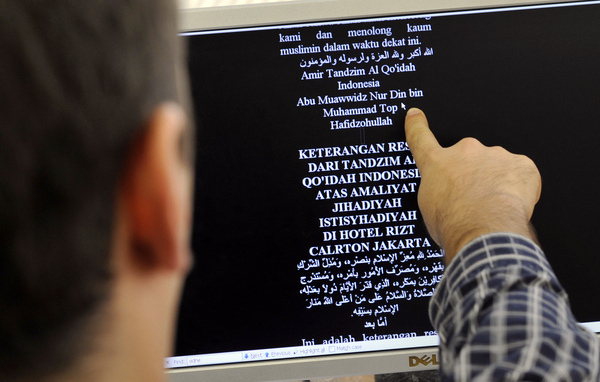 kami dan menolong kaum
muslimin dalam waktu dekat ini.
الله أكبر ولله العزة ولرسوله والمؤمنون
Amir Tandzim Al Qo'idah
Indonesia
Abu Muawwidz Nur Din bin
Muhammad Top
Hafidzohullah
KETERANGAN RES
DARI TANDZIM A
QO'IDAH INDONES
ATAS AMALIYAT
JIHADIYAH
ISTISYHADIYAH
DI HOTEL RIZT
CALRTON JAKARTA
الحَمْدُ لِلَّهِ مُعِزِّ الإسْلامِ بِنَصْرِهِ، وَمُذِلِّ الشِّرْكِ
بِقَهْرِهِ، وَمُصَرِّفِ الأُمُورِ بِأَمْرِهِ، وَمُسْتَدْرِجِ
بِمَكْرِهِ، الَّذِي قَدَّرَ الأَيَّامَ دُوَلاً بِعَدْلِهِ،
الصَّلاةُ وَالسَّلامُ عَلَى مَنْ أَعْلَى اللهُ مَنَارَ
الإِسْلامِ بِسَيْفِهِ.
أَمَّا بَعد
Ini adalah keterangan res
Next Previous Highlight all
DELL